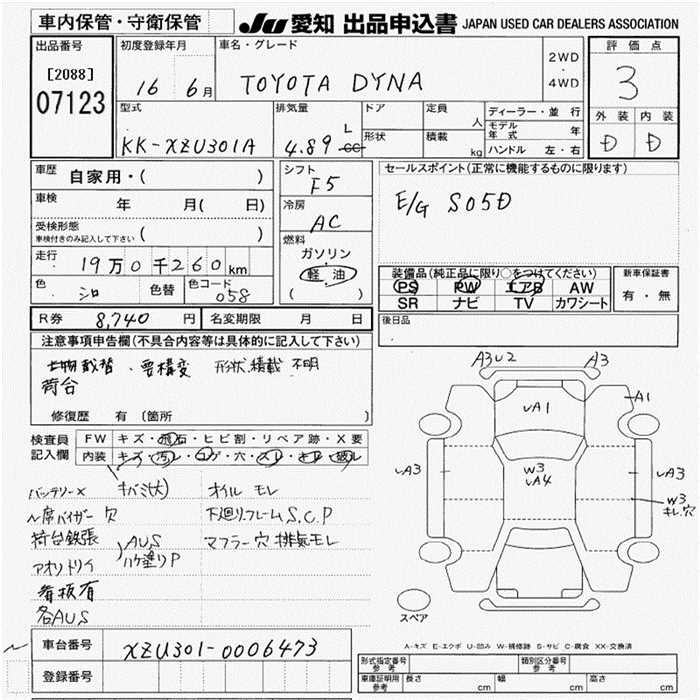 車内保管・守衛保管
JU 愛知 出品申込書 JAPAN USED CAR DEALERS ASSOCIATION
出品番号
[2088]
07123
初度登録年月
16 6月
車名・グレード
TOYOTA DYNA
2WD
・
4WD
評価点
3
外装 内装
D D
型式
KK-XZU301A
排気量
4.89 L
cc
ドア
形状
定員
人
積載
kg
ディーラー・並行
モデル年式 年
ハンドル 左・右
車歴
自家用・( )
車検
年 月( 日)
受検形態
車検付きのみ記入して下さい ( )
走行
19万0千260km
色
シロ
色替
色コード
058
シフト
F5
冷房
AC
燃料
ガソリン
軽油
( )
セールスポイント(正常に機能するものに限ります)
E/G S05D
装備品(純正品に限り○をつけてください)
PS PW エアB AW
SR ナビ TV カワシート
新車保証書
有・無
R券 8,740 円
名変期限 月 日
後日品
注意事項申告欄(不具合内容等は具体的に記入して下さい)
載替 要構変 形状,積載 不明
荷台
修復歴 有 (箇所 )
検査員
記入欄
FW キズ・飛石・ヒビ割・リペア跡・X要
内装 キズ・汚レ・コゲ・穴・スレ・キレ・破レ
バッテリー×
キバミ(大)
オイル モレ
席バイザー 欠
下廻リフレームS,C,P
荷台鉄張
AUS
ハケ塗りP
マフラー穴 排気モレ
アオリトリイ
看板有
各AUS
A3U2
A3
A1
UA1
UA3
W3
UA4
UA3
W3
キレ,穴
スペア
A-キズ E-エクボ U-凹み W-補修跡 S-サビ C-腐食 XX-交換済
車台番号
XZU301-0006473
登録番号
形式指定番号
参考
類別区分番号
参考
車庫証明用
参考
長さ cm
幅 cm
高さ cm